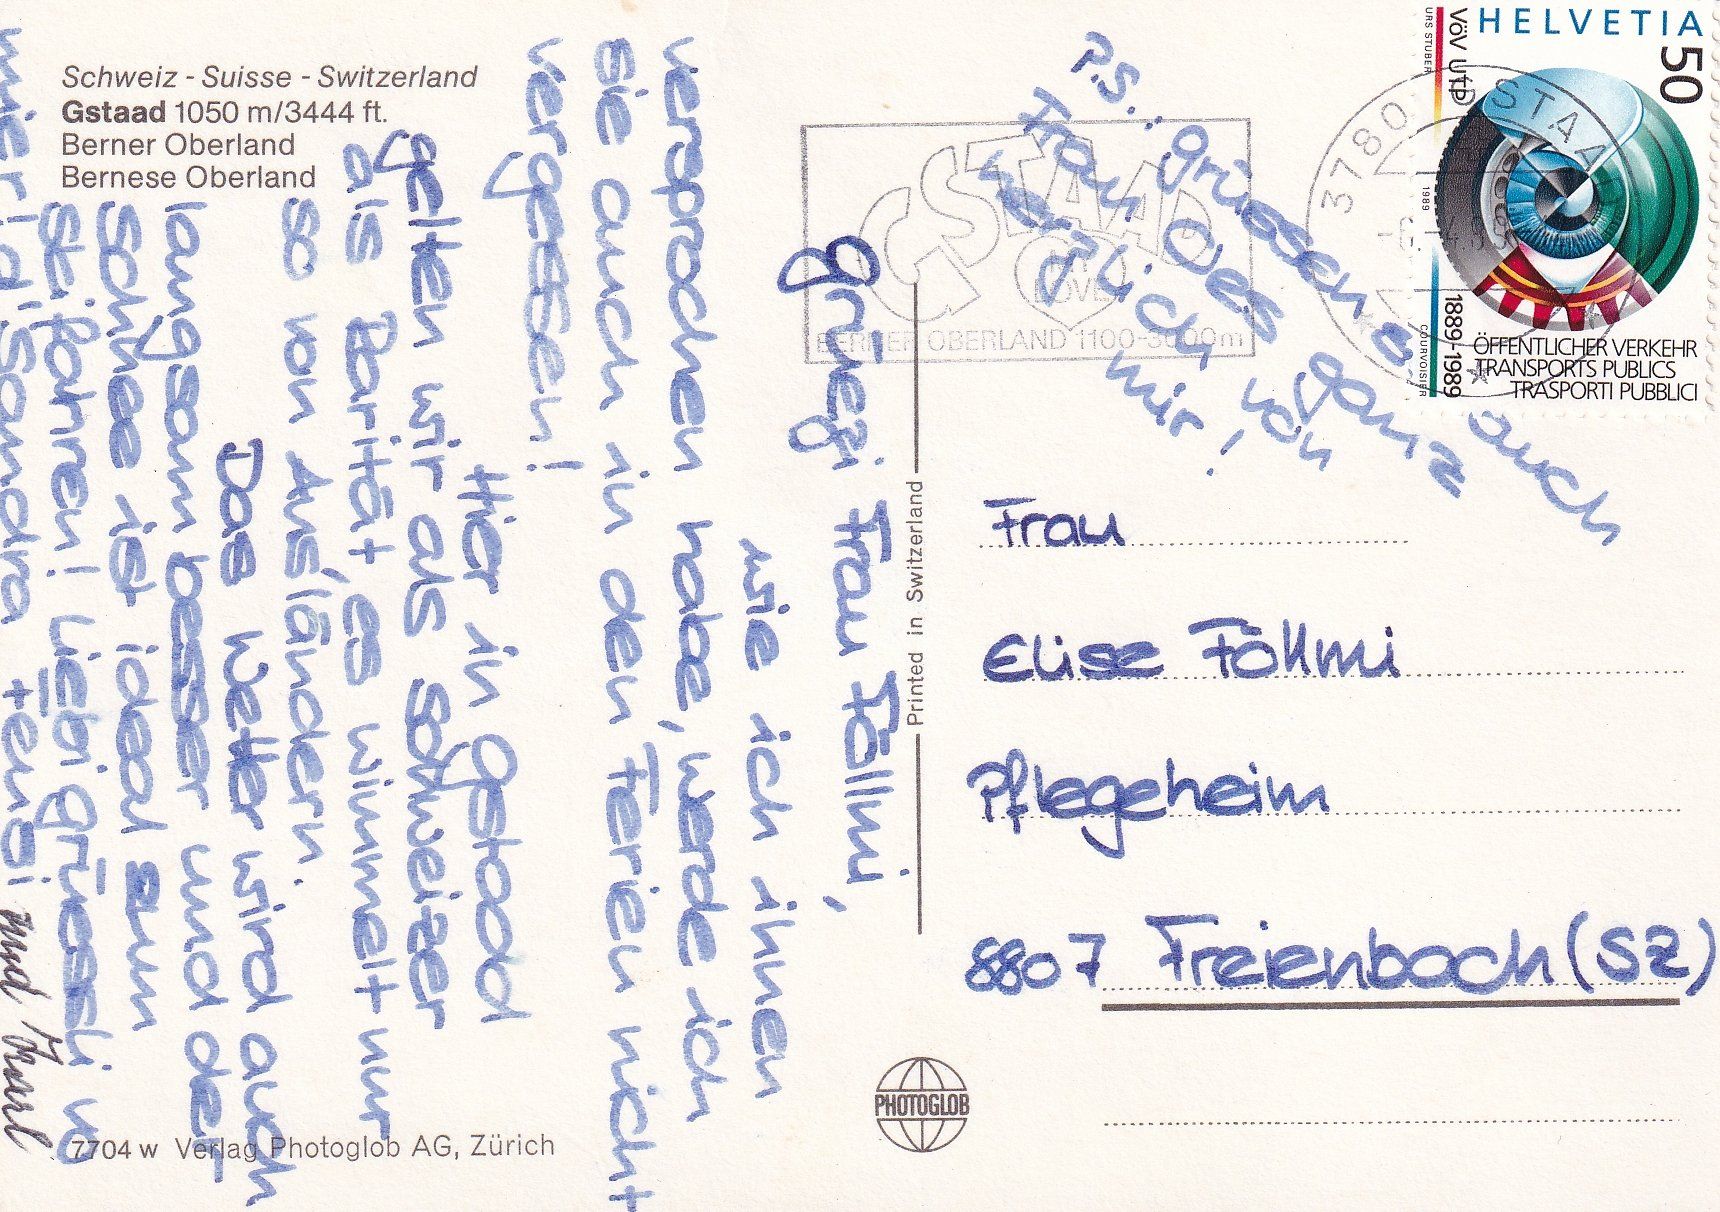 Schweiz - Suisse - Switzerland
Gstaad 1050 m/3444 ft.
Berner Oberland
Bernese Oberland
Grüezi Frau Föllmi,
wie ich ihnen
versprochen habe, werde ich
Sie auch in den Ferien nicht
vergessen!
Hier in Gstaad
gelten wir als Schweizer
als Rarität, es wimmelt nur
so von Ausländern.
Das Wetter wird auch
langsam besser und der
Schnee ist ideal zum
Skifahren! Liebi Grüessli vo
mier! d'Sandra
und
P.S.: grüssen sie auch
Frau Oes ganz
herzlich von
mir!
HELVETIA
50
VöV UTP
URS STUBER
1989
COURVOISIER
1889-1989
ÖFFENTLICHER VERKEHR
TRANSPORTS PUBLICS
TRASPORTI PUBBLICI
3780 GSTAAD
GSTAAD
MY
LOVE
BERNER OBERLAND 1100-3000m
Frau
Elise Föllmi
Pflegeheim
8807 Freienbach (SZ)
Printed in Switzerland
PHOTOGLOB
7704 w Verlag Photoglob AG, Zürich